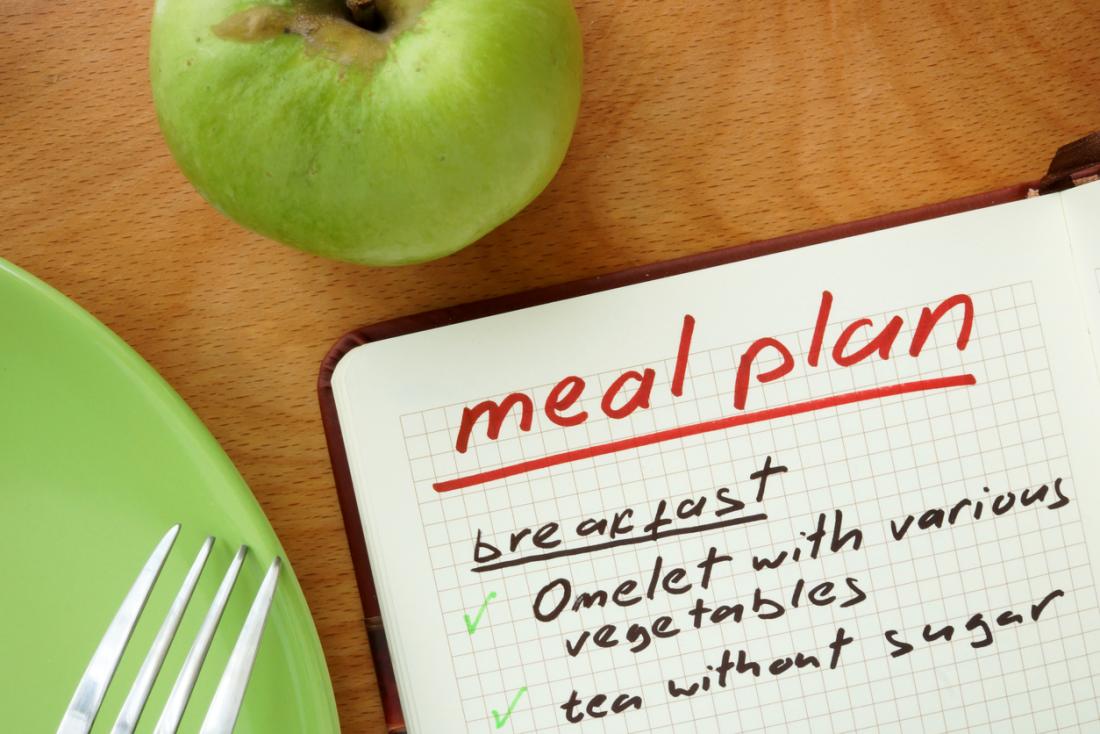 meal plan
breakfast
✓ Omelet with various
vegetables
✓ tea without sugar